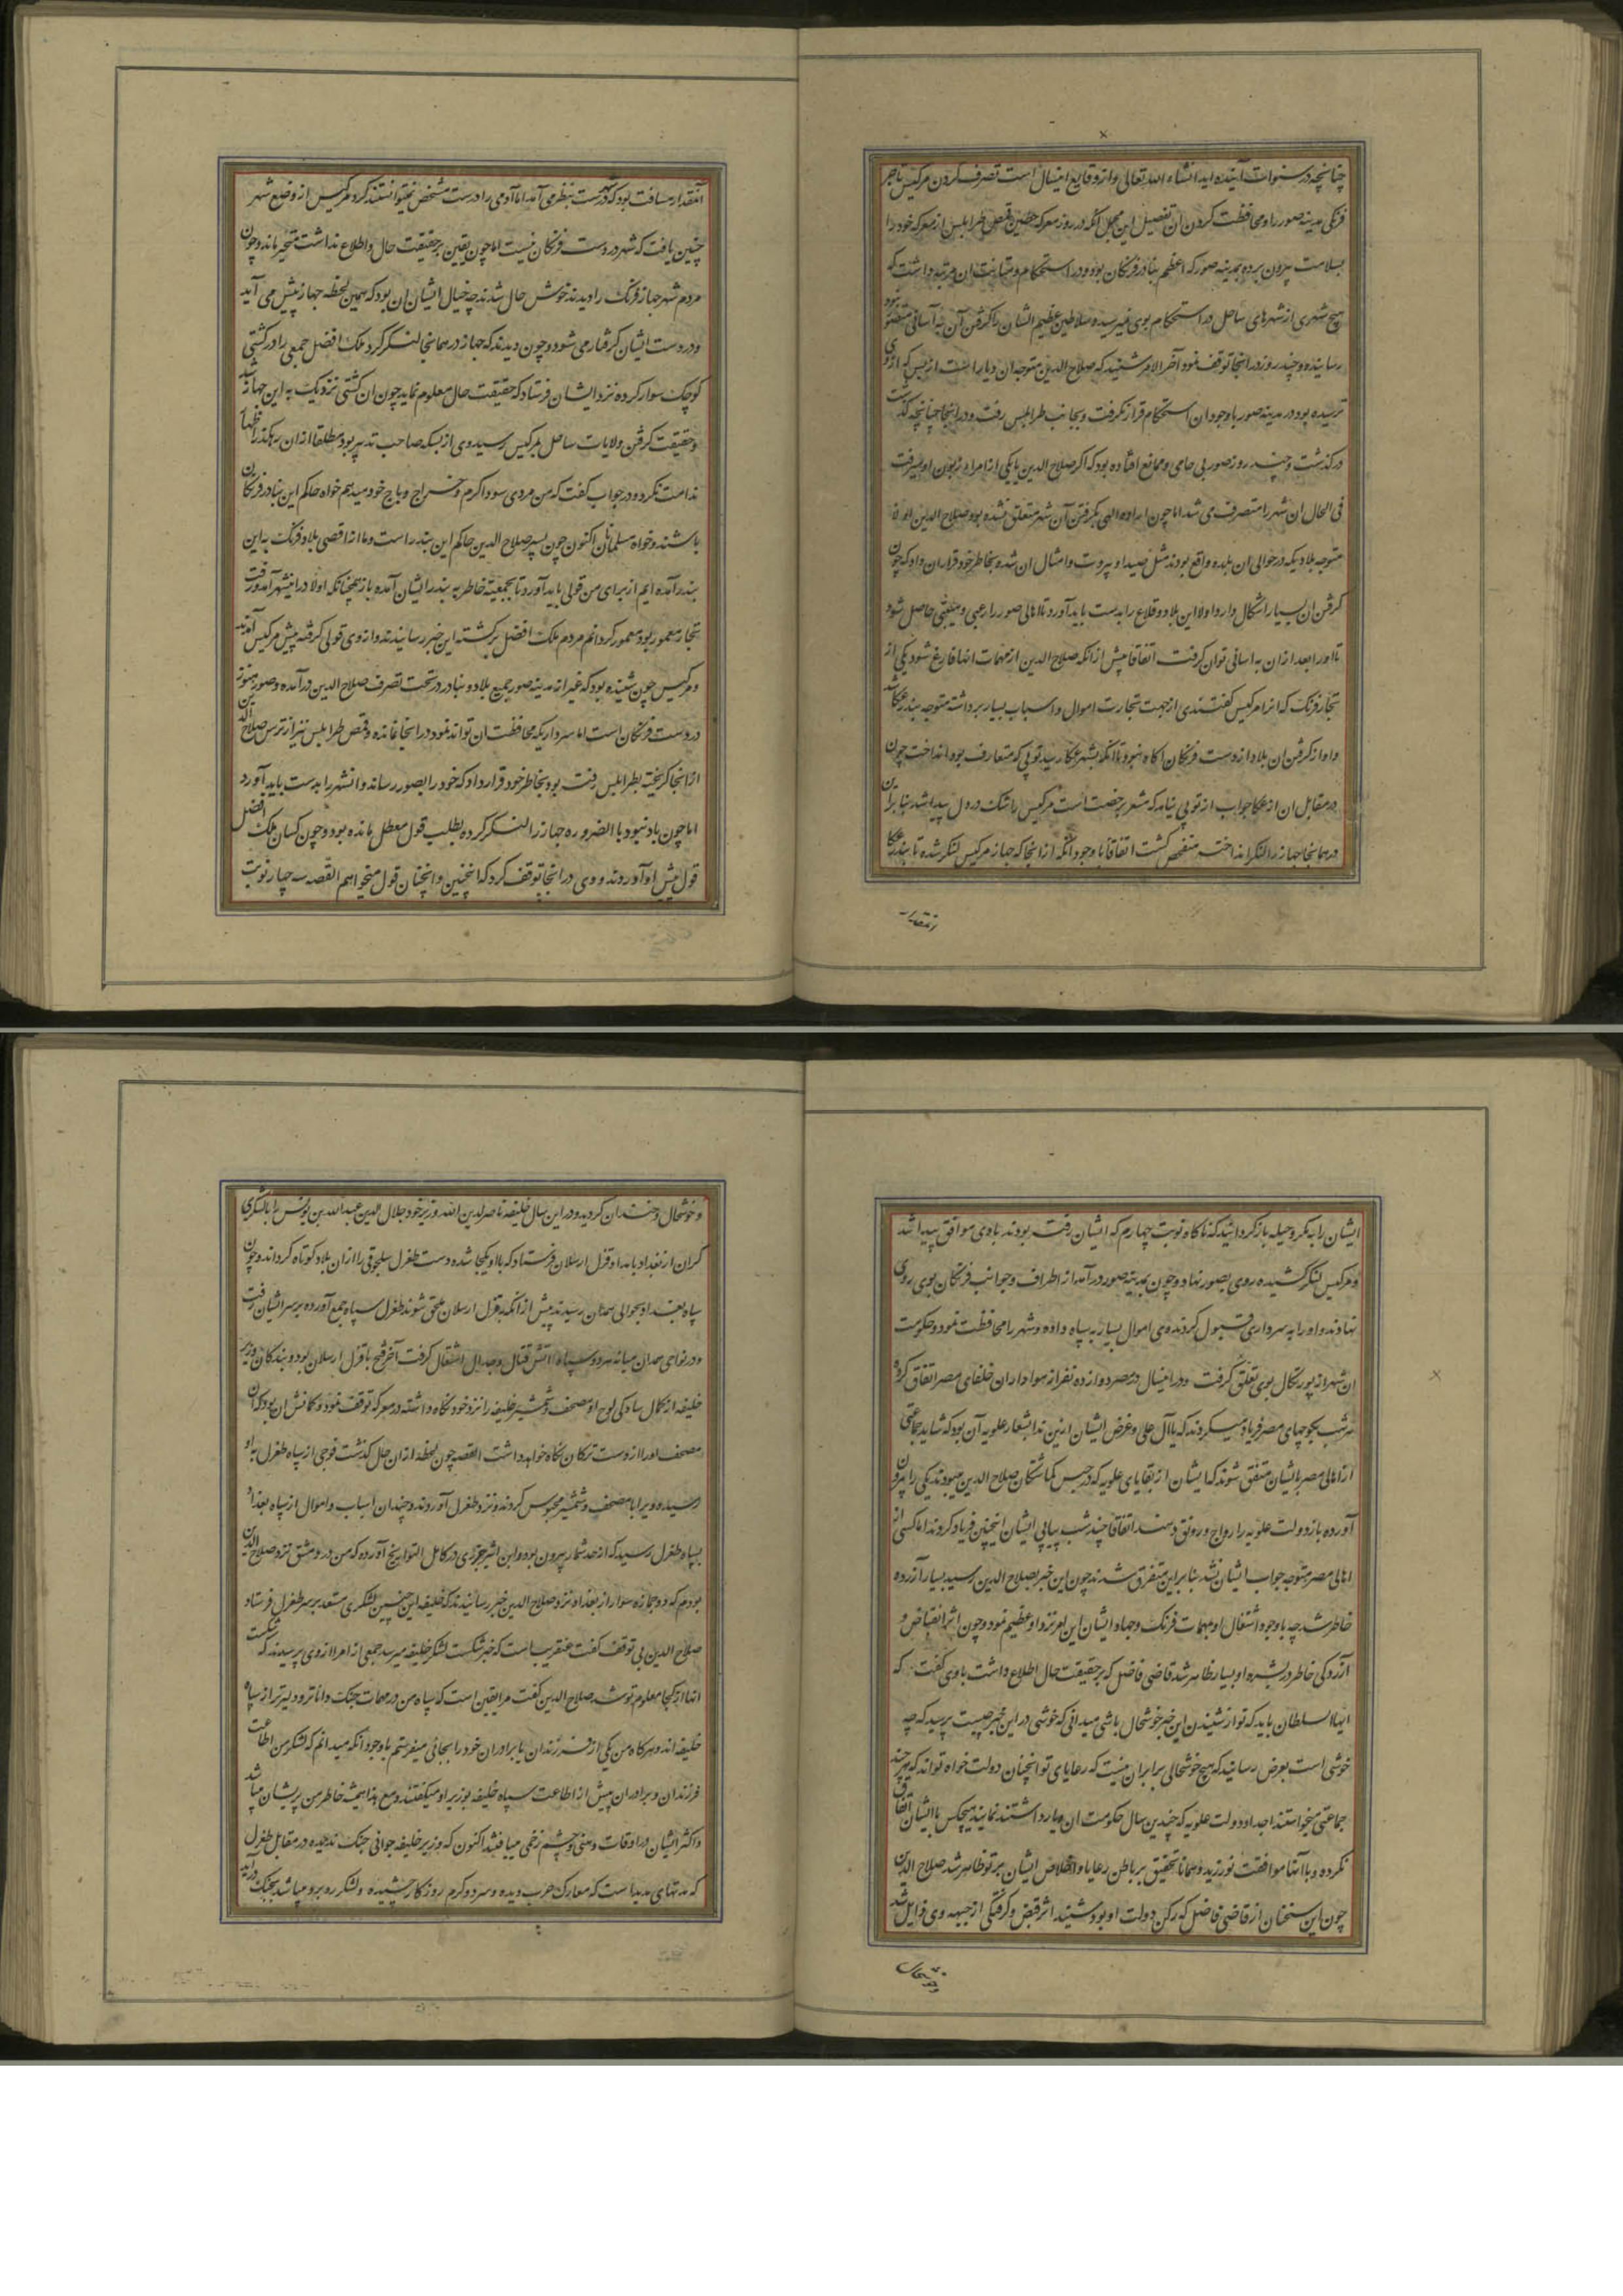 چنانچه در سنوات آینده اید انشاء الله تعالی و از وقایع امسال است تصرف کردن مرکیس تاجر
فرنکی مدینه صور را و محافظت کردن ان تفصیل این مجمل انکه در روز معرکه حطین قمص طرابلس از معرکه خود را
بسلامت بیرون برده بمدینه صور که اعظم بنادر فرنکان بود و در استحکام و متانت ان مرتبه داشت که
هیچ شهری از شهرهای ساحل در استحکام بوی نمیرسید و سلاطین عظیم الشان را کرفتن آن به آسانی متصور نبود
رسانیده و چند روز در انجا توقف نمود آخر الامر شنید که صلاح الدین متوجه ان دیار است از بس که از وی
ترسیده بود در مدینه صور باوجود ان استحکام قرار نکرفت و بجانب طرابلس رفت و در انجا چنانچه کذشت
درکذشت و چند روز صور بی حامی و ممانع افتاده بود که اکر صلاح الدین یا یکی از امراء بران او میرفت
فی الحال ان شهر را متصرف می شد اما چون اراده الهی بکرفتن آن شهر متعلق نشده بود صلاح الدین اولا
متوجه بلاد دیکر در حوالی ان بلده واقع بودند مثل صیدا و بیروت و امثال ان شد و بخاطر خود قرار ان داد که چون
کرفتن ان بسیار اشکال دارد اولا این بلاد و قلاع را بدست باید آورد تا اهالی صور را رعبی و هیبتی حاصل شود
تا او را بعد از ان به اسانی توان کرفت اتفاقا پیش از انکه صلاح الدین از مهمات انها فارغ شود یکی از
تجار فرنک که انرا مرکیس کفتندی از جهت تجارت اموال و اسباب بسیار برداشته متوجه بندر عکا شد
و او از کرفتن ان بلاد از دست فرنکان اکاه نبود تا انکه بشهر عکا رسید توپی که متعارف بود انداخت چون
در مقابل ان از عکا جواب از توپی نیامد که مشعر برخصت است مرکیس را شک در دل پیدا شد بنا بران
در همانجا جهاز را لنکر انداخته متفحص کشت اتفاقا باوجود انکه از انجا که جهاز مرکیس لنکر شده تا بندر عکا
انمقدار
آنمقدار مسافت بود که شهر درست بنظر می آمد اما آدمی را درست مشخص نمیتوانستند کرد مرکیس از وضع شهر
چنین یافت که شهر در دست فرنکان نیست اما چون یقین برحقیقت حال و اطلاع نداشت متحیر ماند و چون
مردم شهر جهاز فرنک را دیدند خوش حال شدند چه خیال ایشان ان بود که همین لحظه جهاز پیش می آید
و در دست ایشان کرفتار می شود و چون دیدند که جهاز در همانجا لنکر کرد ملک افضل جمعی را در کشتی
کوچک سوار کرده نزد ایشان فرستاد که حقیقت حال معلوم نماید چون ان کشتی نزدیک به این جهاز شد
و حقیقت کرفتن ولایات ساحل بمرکیس رسید وی از بسکه صاحب تدبیر بود مطلقا ازان رهکذر اظهار
ندامت نکرد و در جواب کفت که من مردی سوداکرم و خراج و باج خود میدهم خواه حاکم این بنادر فرنکان
باشند و خواه مسلمانان اکنون چون پسر صلاح الدین حاکم این بندر است و ما از اقصی بلاد فرنک به این
بندر آمده ایم از برای من قولی باید آورد تا بجمعیت خاطر به بندر ایشان آمده باز همچنانکه اولا در این شهر آمد و رفت
تجار معمور بود معمور کردانم مردم ملک افضل برکشته این خبر رسانیدند و از وی قولی کرفته پیش مرکیس آمدند
و مرکیس چون شنیده بود که غیر از مدینه صور جمیع بلاد و بنادر در تحت تصرف صلاح الدین درآمده و صور هنوز
در دست فرنکان است اما سرداریکه محافظت ان تواند نمود در انجا نمانده و قمص طرابلس نیز از ترس صلاح الدین
از انجا کریخته بطرابلس رفت بود بخاطر خود قرار داد که خود را بصور رساند و انشهر را بدست باید آورد
اما چون باد نبود بالضروره جهاز را لنکر کرده بطلب قول معطل مانده بود و چون کسان ملک افضل
قول پیش او آوردند و وی در انجا توقف کرد که اینچنین و انچنان قول میخواهم القصه سه چار نوبت
ایشان را بمکر و حیله بازکردانید که ناکاه نوبت چهارم که ایشان رفته بودند بادی موافق پیدا شد
و مرکیس لنکر کشیده روی بصور نهاد و چون بمدینه صور درآمد از اطراف و جوانب فرنکان بوی روی
نهادند و او را به سرداری قبول کردند وی اموال بسیار به سپاه داده و شهر را محافظت نمود و حکومت
ان شهر از پورتکال بوی تعلق کرفت و در امسال در مصر دوازده نفر از هواداران خلفای مصر اتفاق کرده
هر شب بکوچهای مصر فریاد میکردند که یا آل علی و غرض ایشان ازین ندا بشعار علویه آن بود که شاید جماعتی
از اهالی مصر با ایشان متفق شوند که ایشان از بقایای علویه که در حبس کماشتکان صلاح الدین میبودند یکی را بیرون
آورده باز دولت علویه را رواج و رونق دهند اتفاقا چند شب پیاپی ایشان اینچنین فریاد کردند اما کسی از
اهالی مصر متوجه جواب ایشان نشد بنابراین متفرق شدند چون این خبر بصلاح الدین رسید بسیار آزرده
خاطر شد چه باوجود اشتغال او بمهمات فرنک و جهاد ایشان این امر نزد او عظیم نمود و چون اثر انقباض و
آزردکی خاطر در بشره او بسیار ظاهر شد قاضی فاضل که برحقیقت حال اطلاع داشت باوی کفت که
ایها السلطان باید که تو از شنیدن این خبر خوشحال باشی میدانی که خوشی در این خبر چیست پرسید که چه
خوشی است بعرض رسانید که هیچ خوشحالی برابر ان نیست که رعایای تو انچنان دولت خواه تو اند که هر چند
جماعتی میخواستند احداد دولت علویه که چندین سال حکومت ان دیار داشتند نمایند هیچکس با ایشان اتفاق
نکرده و با آنها موافقت نورزید و همانا بتحقیق بر باطن رعایا و اخلاص ایشان برتو ظاهر شد صلاح الدین
چون این سخنان از قاضی فاضل که رکن دولت او بود شنید اثر قبض و کرفتکی از جبهه وی زایل شد
و خوشحال
و خوشحال و خندان کردید و در این سال خلیفه ناصر لدین الله وزیر خود جلال الدین عبدالله بن یونس را با لشکری
کران از بغداد بامداد قزل ارسلان فرستاد که با او یکجا شده دست طغرل سلجوقی را از ان بلاد کوتاه کرداند و چون
سپاه بغداد بحوالی همدان رسیدند پیش از انکه بقزل ارسلان ملحق شوند طغرل سپاه جمع آورده برسر ایشان رفت
و در نواحی همدان میانه هردو سپاه آتش قتال و جدال اشتعال کرفت آخر فتح با قزل ارسلان بود و بندکان وزیر
خلیفه از کمال سادکی لوح او مصحف و شمشیر خلیفه را نزد خود نکاه داشته در معرکه توقف نمود و کمانش ان بود که آن
مصحف او را از دست ترکان نکاه خواهد داشت القصه چون لحظه از ان حال کذشت فوجی از سپاه طغرل به او
رسیده و ویرا با مصحف و شمشیر محبوس کردند و نزد طغرل آوردند و چندان اسباب و اموال از سپاه بغداد
بسپاه طغرل رسید که از حد شمار بیرون بود و ابن اثیر جزری در کامل التواریخ آورده که من در دمشق نزد صلاح الدین
بودم که دو جمازه سوار از بغداد نزد صلاح الدین خبر رسانیدند که خلیفه این چنین لشکری مستعد برسر طغرل فرستاد
صلاح الدین بی توقف کفت عنقریب است که خبر شکست لشکر خلیفه میرسد جمعی از امرا از وی پرسیدند که شکست
انها از کجا معلوم تو شد صلاح الدین کفت مرا یقین است که سپاه من در مهمات جنک داناتر و دلیرتر از سپاه
خلیفه اند و هرکاه من یکی از فرزندان یا برادران خود را بجائی میفرستم باوجود انکه میدانم که لشکر من اطاعت
فرزندان و برادران پیش از اطاعت سپاه خلیفه بوزیر او میکنند و مع هذا همیشه خاطر من پریشان میباشد
و اکثر ایشان در اوقات وهنی و چشم زخمی میبابند اکنون که وزیر خلیفه جوانی جنک ندیده در مقابل طغرل
که مدتهای مدید است که معارک حرب دیده و سرد و کرم روزکار چشیده و لشکر روبرو میباشد بجنک درآید